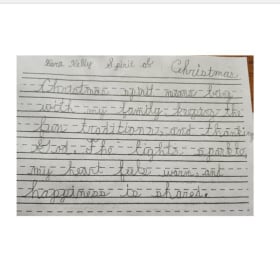 Kelly Spirit of Christmas
Christmas spirit means being
with my family the
fun traditions and thank
God. The lights sparkle,
my heart feels warm and
happiness is shared.